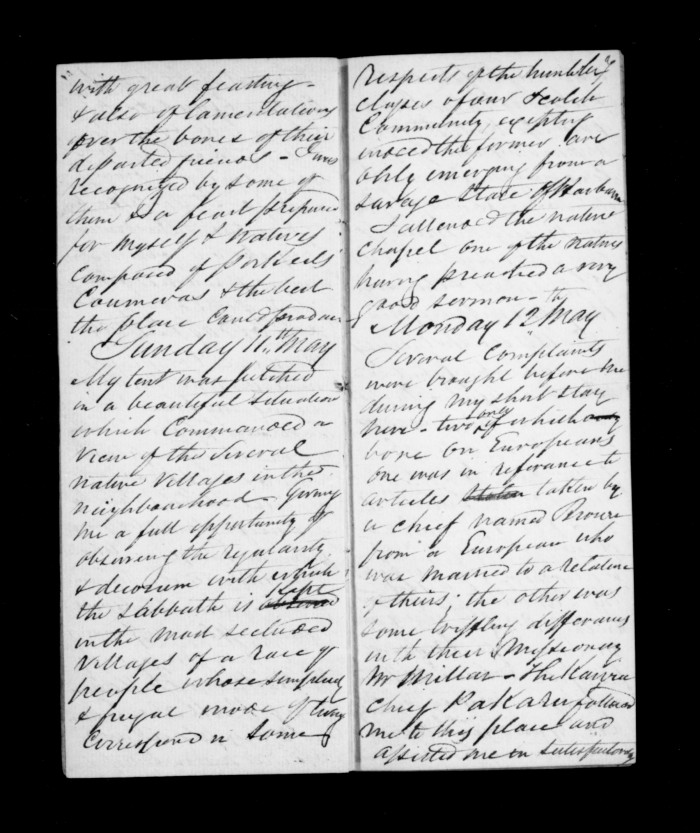 with great feasting -
& also of lamentations
over the bones of their
departed friends - I was
recognized by some of
them & a feast prepared
for myself & Natives
composed of Pork eels
Coumeras & the best
the place could produce -
Sunday 11th May
My tent was pitched
in a beautiful situation
which Commanded a
View of the Several
native Villages in the
neighbourhood - Giving
me a full opportunity of
observing the regularity
& decorum with which
the Sabbath is kept
in the most secluded
Villages of a race of
people whose simplicity
& frugal mode of living
Correspond in some
respects of the humbler
classes of our Scotch
Community, excepting
indeed the former are
only emerging from a
savage State of
I attended the native
chapel one of the natives
having preached a very
good sermon -
Monday 12th May
Several Complaints
were brought before me
during my short stay
here - two only of which
bore on Europeans
one was in reference to
articles stolen taken by
a chief named
from a European who
was married to a relation
of theirs; the other was
some trifling differences
with their Missionary
Mr Millar - The Kawia
chief PaKaru followed
me to this place and
assisted me in satisfactorily